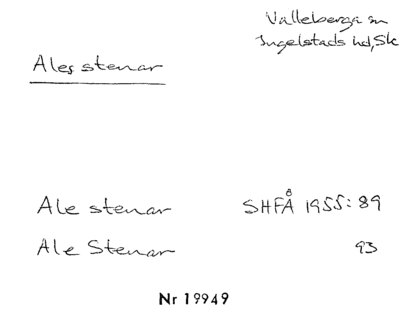 Valleberga sn
Ingelstads hd, Sk
Ales stenar
Ale stenar SHFÅ 1955: 89
Ale Stenar 93
Nr 19949